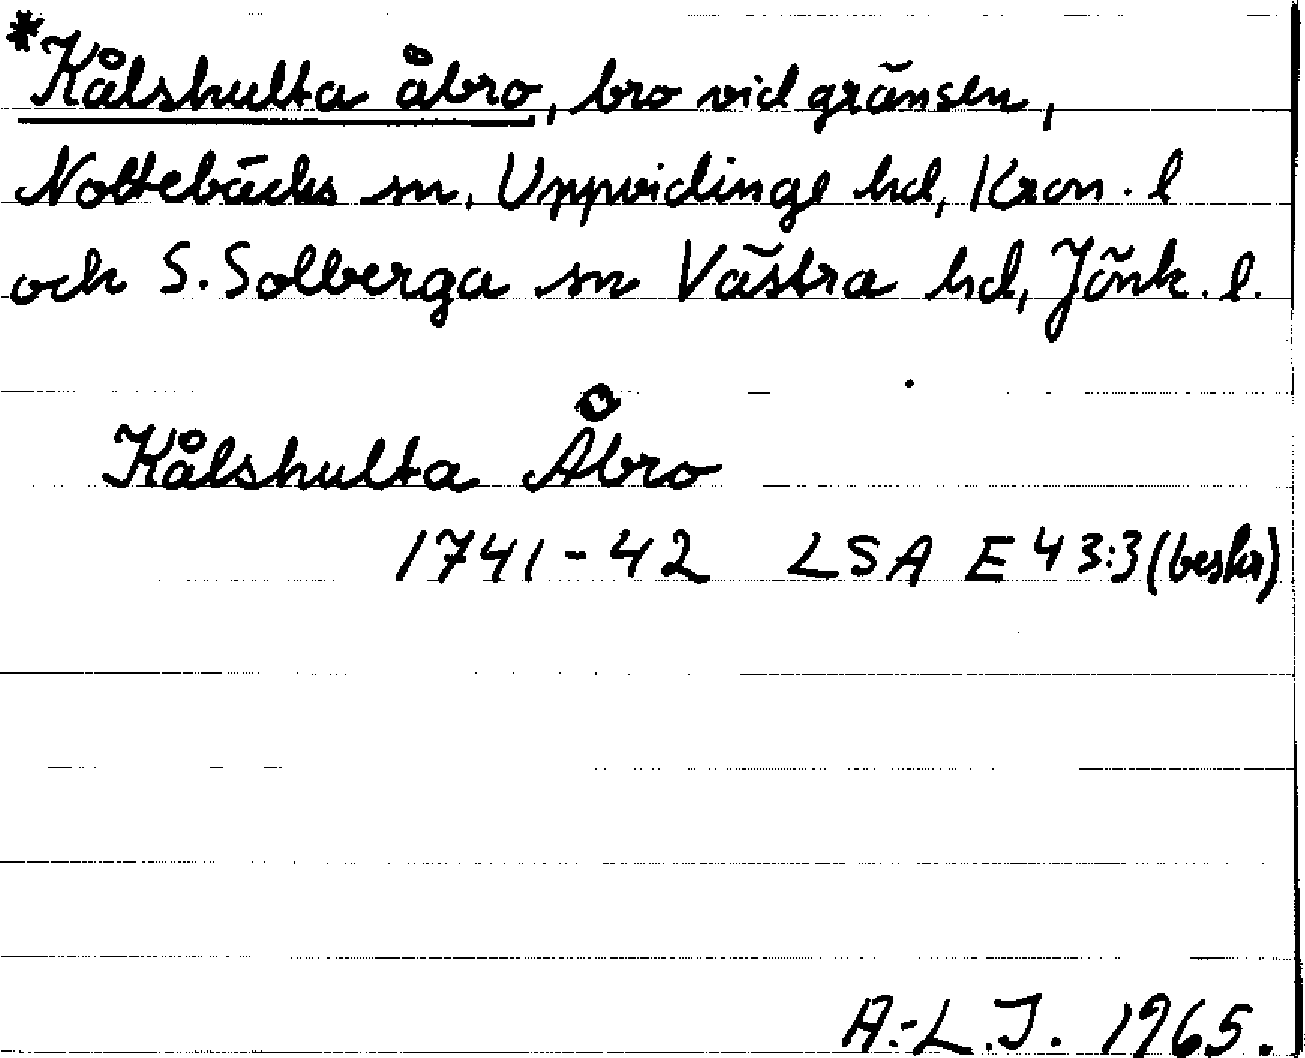 *Kålshulta åbro, bro vid gränsen,
Nottebäcks sn, Uppvidinge hd, Kron. l
och S. Solberga sn Västra hd, Jönk. l.
Kålshulta Åbro
1741-42 LSA E 43:3 (beskr)
A.-L.J. 1965.